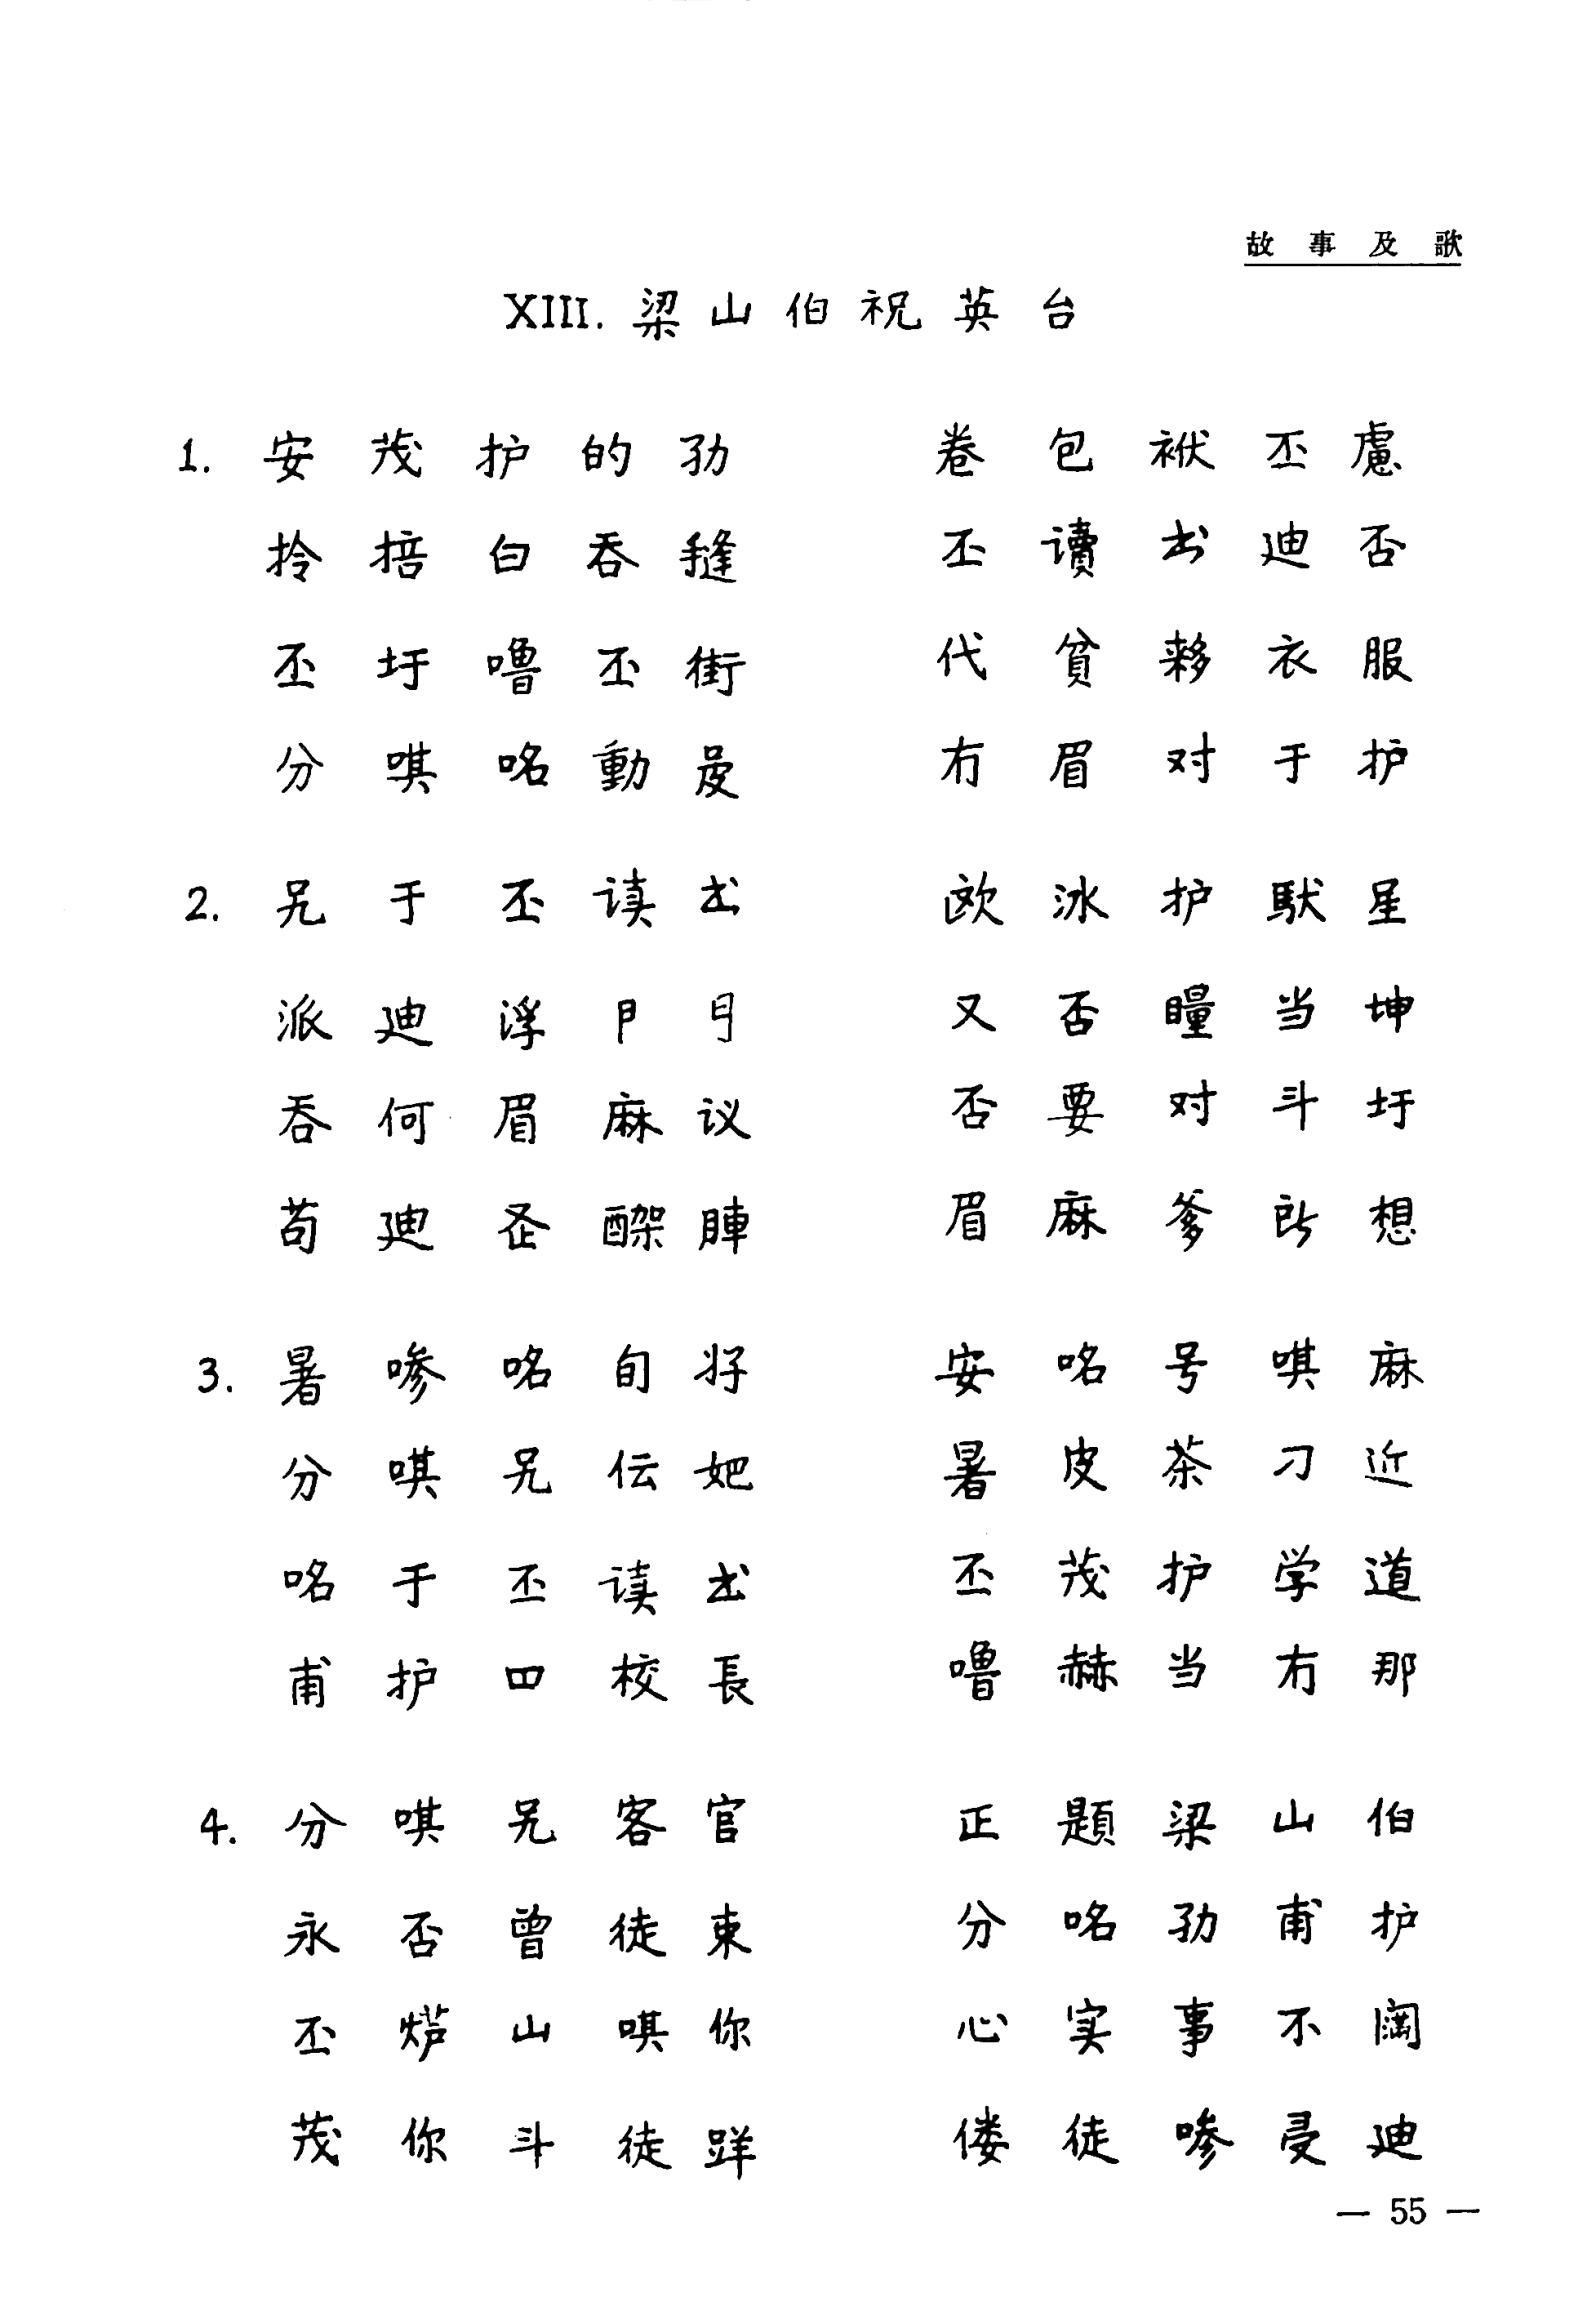 故事及歌
XIII. 梁山伯祝英台
1. 安茂护的劧 卷包袱丕慮
拎掊白吞縫 丕讀书迪否
丕圩噜丕街 代貧夥衣服
分唭咯動𡲢 冇眉对于护
2. 兄于丕读书 欧泳护馱星
派迪浮 又否瞳当坤
吞何眉麻议 否要对斗圩
苟迪丕 眉麻爹所想
3. 暑嘇咯旬好 安咯号唭麻
分唭兄伝妑 暑皮茶刁近
咯于丕读书 丕茂护学道
甫护四校長 噜赫当冇那
4. 分唭兄客官 正題梁山伯
永否曾徒束 分咯劧甫护
丕炉山唭你 心实事不阔
茂你斗徒跘 偻徒嘇迪
— 55 —